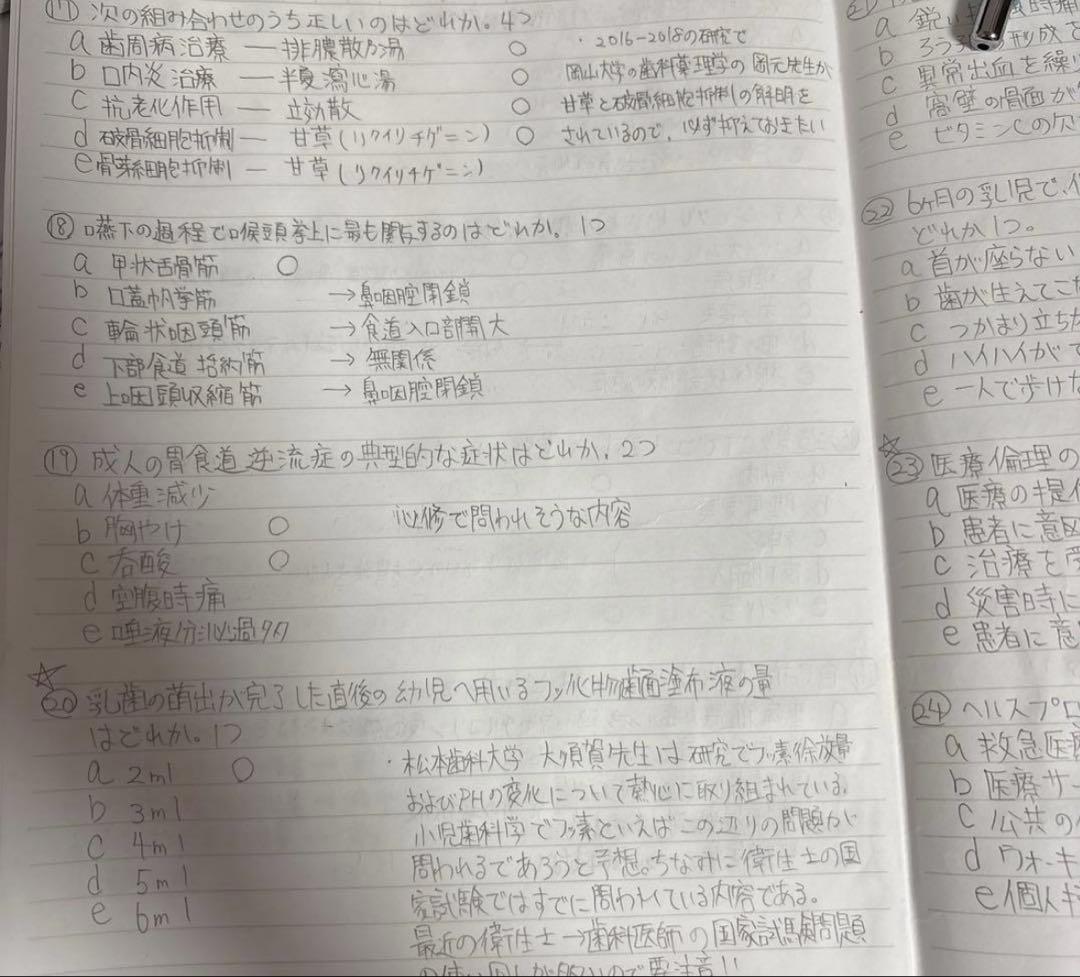 ⑰ 次の組み合わせのうち正しいのはどれか。4つ
a 歯周病治療 ― 排膿散及湯 ○
b 口内炎治療 ― 半夏瀉心湯 ○
c 抗老化作用 ― 立効散 ○
d 破骨細胞抑制 ― 甘草(リクイリチゲニン) ○
e 骨芽細胞抑制 ― 甘草(リクイリチゲニン)
・2016-2018の研究で
岡山大学の歯科薬理学の岡元先生が
甘草と破骨細胞抑制の解明を
されているので、必ず抑えておきたい
⑱ 嚥下の過程で喉頭挙上に最も関与するのはどれか。1つ
a 甲状舌骨筋 ○
b 口蓋帆挙筋 →鼻咽腔閉鎖
c 輪状咽頭筋 →食道入口部開大
d 下部食道括約筋 →無関係
e 上咽頭収縮筋 →鼻咽腔閉鎖
⑲ 成人の胃食道逆流症の典型的な症状はどれか。2つ
a 体重減少
b 胸やけ ○
c 呑酸 ○
d 空腹時痛
e 唾液分泌過多
必修で問われそうな内容
☆
⑳ 乳歯の萌出が完了した直後の幼児へ用いるフッ化物歯面塗布液の量
はどれか。1つ
a 2ml ○
b 3ml
c 4ml
d 5ml
e 6ml
・松本歯科大学 大須賀先生は研究でフッ素徐放量
およびPHの変化について熱心に取り組まれている。
小児歯科学でフッ素といえばこの辺りの問題が
問われるであろうと予想。ちなみに衛生士の国
家試験ではすでに問われている内容である。
最近の衛生士→歯科医師の国家試験問題
の使い回しが酷いので要注意!!
a 鋭い
b
c 異常出血を繰
d 窩壁の骨面が
e ビタミンCの欠
㉒ 6ヶ月の乳児で、
どれか1つ。
a 首が座らない
b 歯が生えてこ
c つかまり立ち
d ハイハイが
e 一人で歩け
☆
㉓ 医療倫理の
a 医療の提
b 患者に意
c 治療を
d 災害時に
e 患者に意
㉔ ヘルスプロ
a 救急医
b 医療サー
c 公共の
d ウォーキ
e 個人